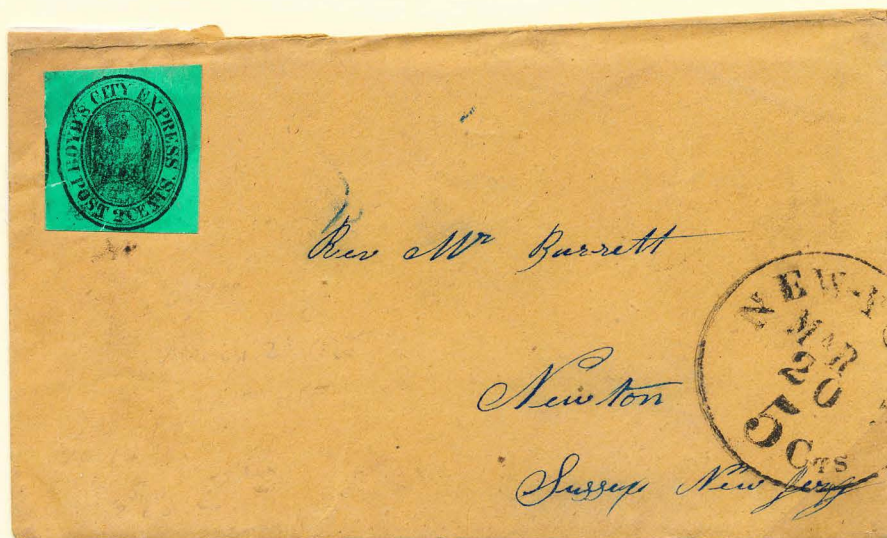 BOYD'S CITY EXPRESS POST 2 CENTS
Rev Mr Barrett
Newton
Sussex New Jersy
NEW-YO
MAR
20
5 CTS